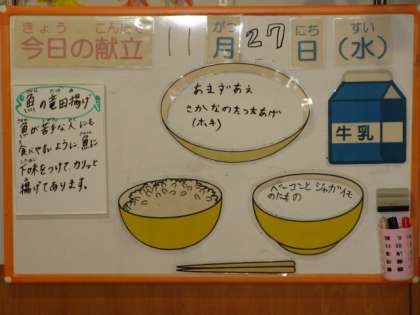 きょう こんだて がつ にち すい
今日の献立 11月27日(水)
あまずあえ
さかなのたつたあげ
(ホキ)
牛乳
魚の竜田揚げ
魚が苦手な人にも
食べやすいように、魚に
下味をつけて、カリッと
揚げてあります。
ベーコンとジャガイモ
のにもの